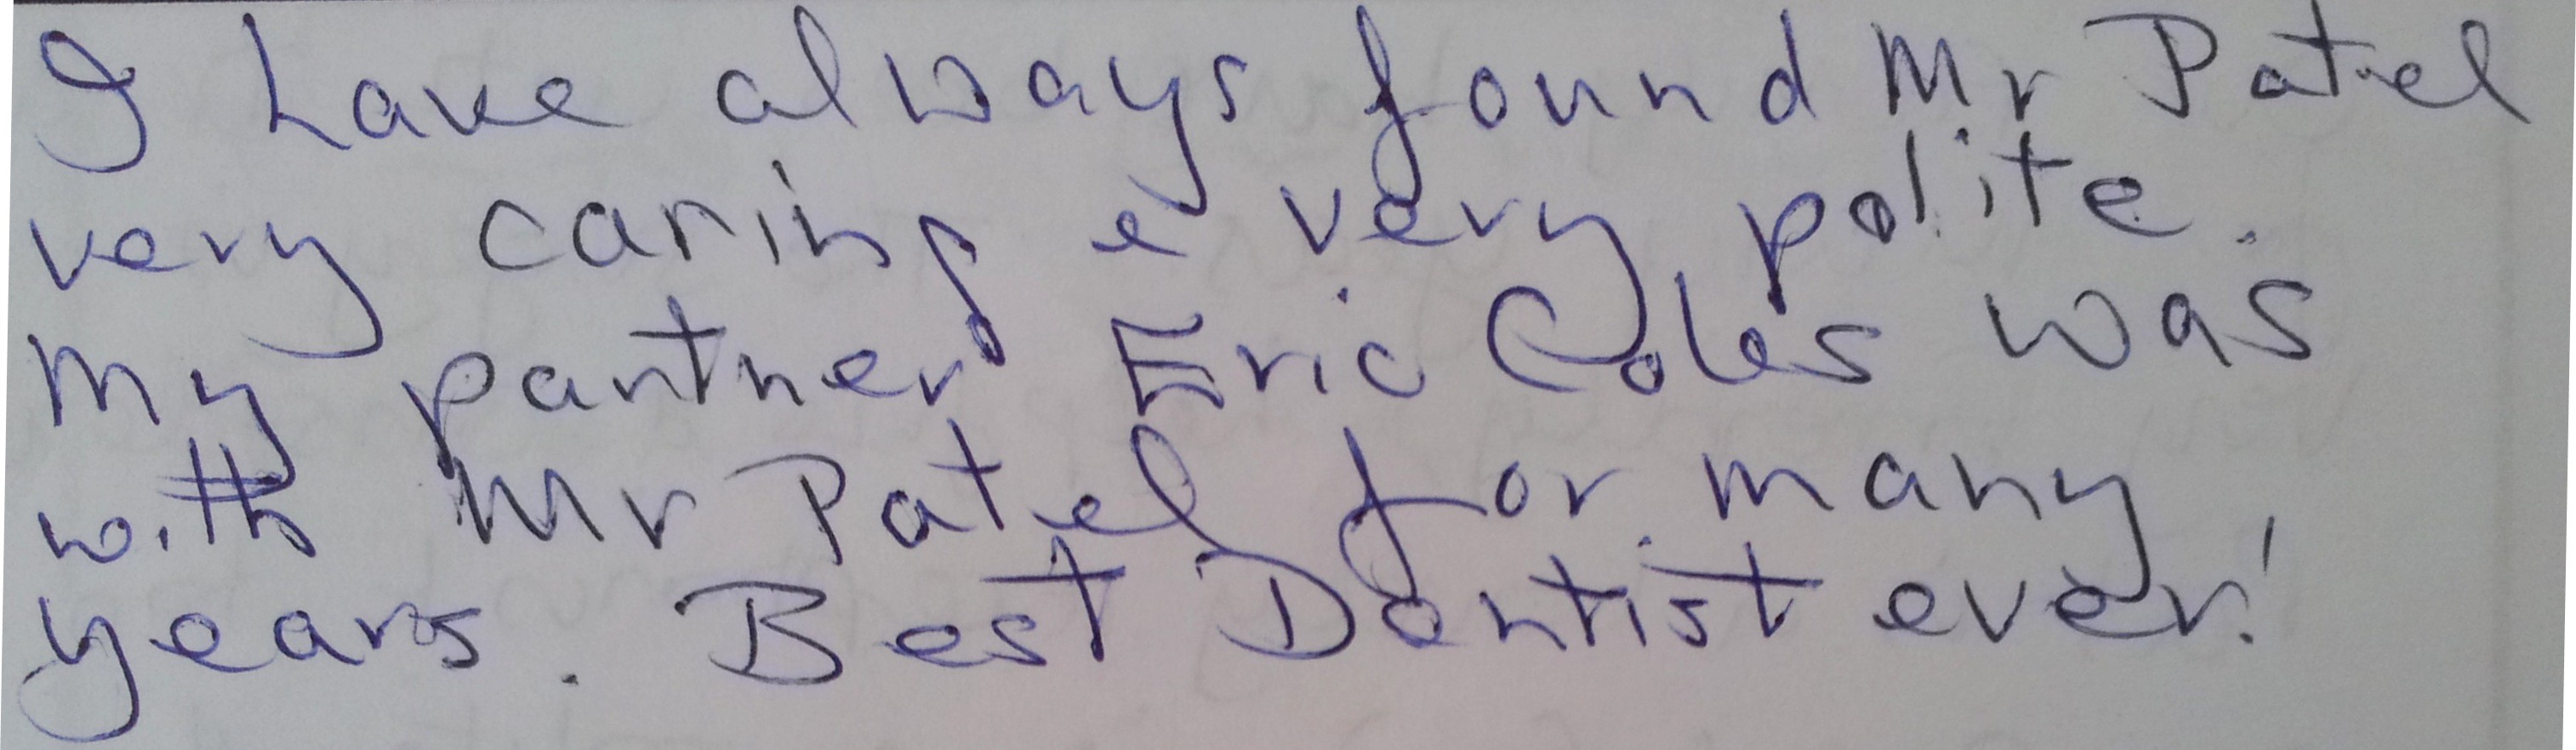 I have always found Mr Patel
very caring & very polite.
My partner Eric Coles was
with Mr Patel for many
years. Best Dentist ever!